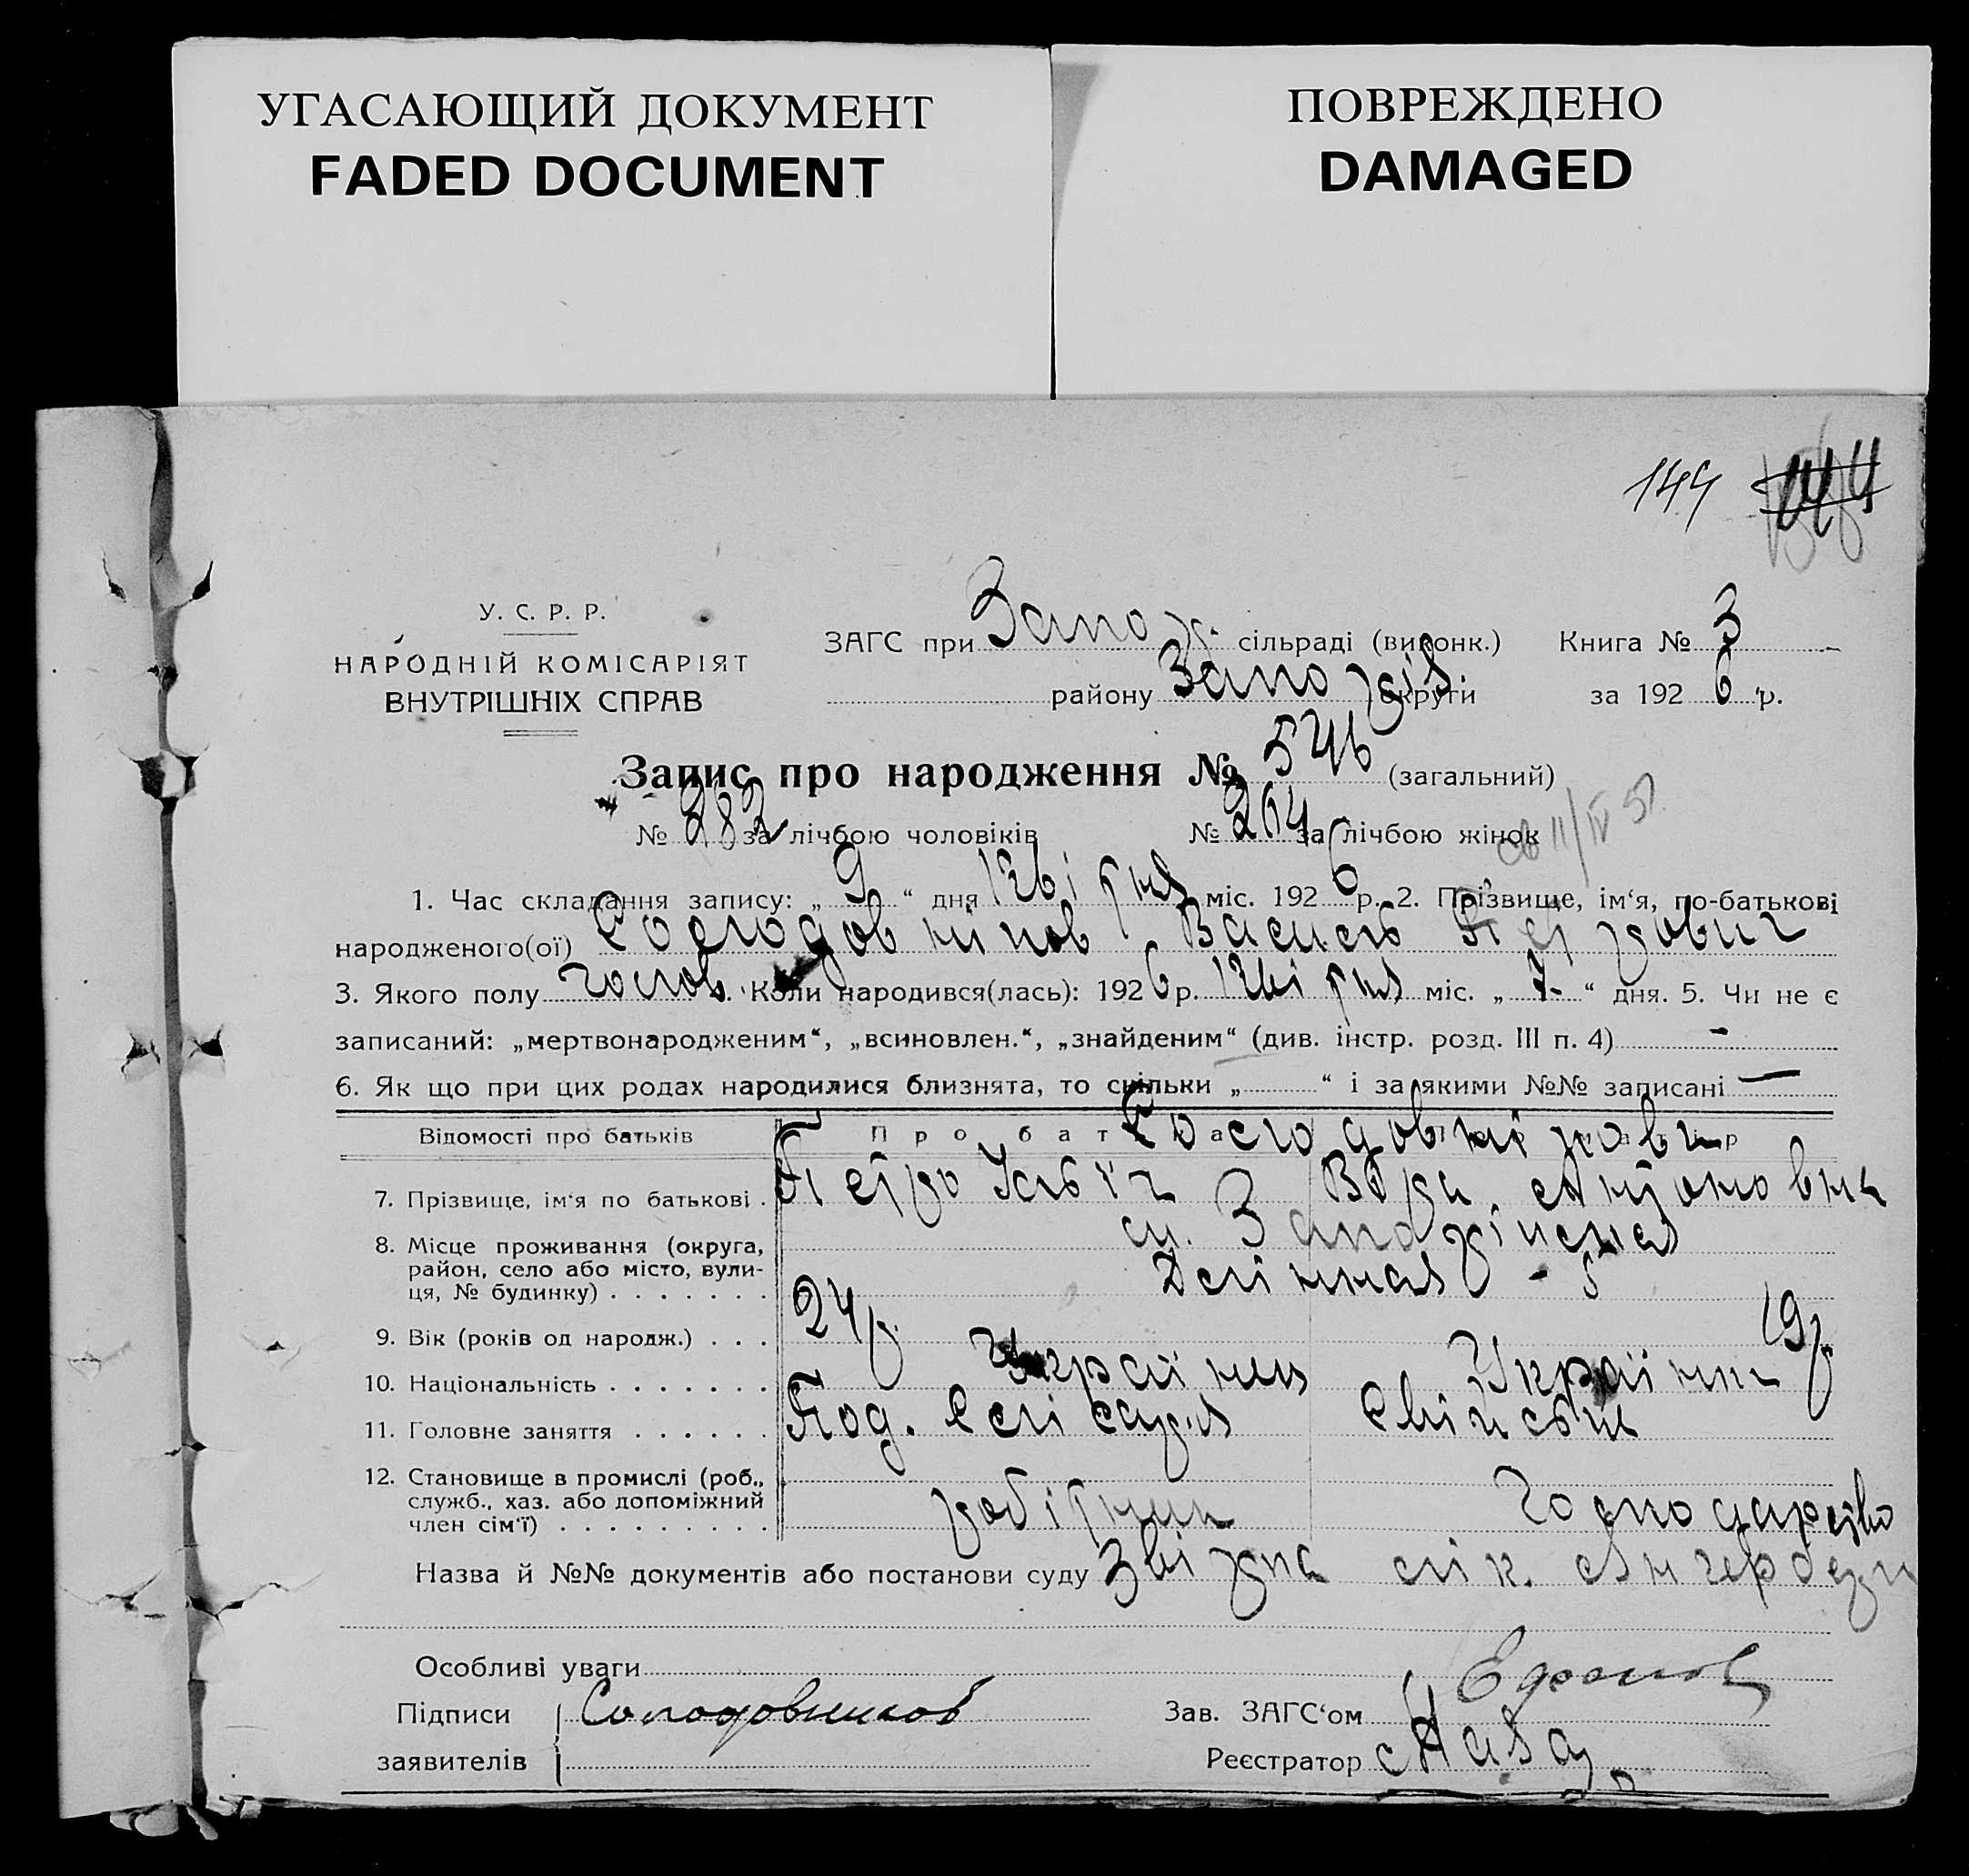 УГАСАЮЩИЙ ДОКУМЕНТ
FADED DOCUMENT
ПОВРЕЖДЕНО
DAMAGED
144
У. С. Р. Р.
НАРОДНІЙ КОМІСАРІЯТ
ВНУТРІШНІХ СПРАВ
ЗАГС при Запоріж. сільраді (виконк.) Книга № 3
району Запоріж. округи за 1926 р.
Запис про народження № 546 (загальний)
№ 282 за лічбою чоловіків № 264 за лічбою жінок
1. Час складання запису: „ 9 “ дня Квітня міс. 1926 р. 2. Прізвище, ім‘я, по-батькові
народженого(ої) Солодовніков Василь Петрович
3. Якого полу чолов. Коли народився(лась): 1926 р. Квітня міс. „ 7 “ дня. 5. Чи не є
записаний: „мертвонародженим“, „всиновлен.“, „знайденим“ (див. інстр. розд. III п. 4) -
6. Як що при цих родах народилися близнята, то скільки „ “ і за якими №№ записані —
Відомості про батьків Про батька Солодовнікови
7. Прізвище, ім‘я по батькові . Петро Ілльїч Віра Антоновна
8. Місце проживання (округа, район, село або місто, вулиця, № будинку) . . . . . . . ст. Запоріжська
Делінная - 5
9. Вік (років од народж.) . . . 24 р. 19 р.
10. Національність . . . . . . . Українец Українка
11. Головне заняття . . . . . . Под. Слісаря
12. Становище в промислі (роб., служб., хаз. або допоміжний член сім‘ї) . . . . . . . . . робітник господарство
Назва й №№ документів або постанови суду Звізка лік.
Особливі уваги
Підписи Солодовников Зав. ЗАГС‘ом
заявителів Реєстратор